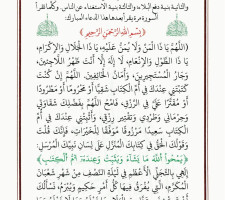 والثانية بنية دفع البلاء والثالثة بنية الاستغناء عن الناس. وكلما تقرأ
السورة مرة تقرأ بعدها هذا الدعاء المبارك:
بِسْمِ اللهِ الرَّحْمنِ الرَّحِيمِ
(اللَّهُمَّ يَا ذَا الْمَنِّ وَلَا يُمَنُّ عَلَيْهِ، يَا ذَا الْجَلَالِ وَالْإِكْرَامِ،
يَا ذَا الطَّوْلِ وَالْإِنْعَامِ، لَا إِلَهَ إِلَّا أَنْتَ ظَهْرُ اللَّاجِئِينَ،
وَجَارُ الْمُسْتَجِيرِينَ، وَأَمَانُ الْخَائِفِينَ. اللَّهُمَّ إِنْ كُنْتَ
كَتَبْتَنِي عِنْدَكَ فِي أُمِّ الْكِتَابِ شَقِيًّا أَوْ مَحْرُومًا أَوْ مَطْرُودًا
أَوْ مُقَتَّرًا عَلَيَّ فِي الرِّزْقِ، فَامْحُ اللَّهُمَّ بِفَضْلِكَ شَقَاوَتِي
وَحِرْمَانِي وَطَرْدِي وَتَقْتِيرَ رِزْقِي، وَأَثْبِتْنِي عِنْدَكَ فِي أُمِّ
الْكِتَابِ سَعِيدًا مَرْزُوقًا مُوَفَّقًا لِلْخَيْرَاتِ، فَإِنَّكَ قُلْتَ
وَقَوْلُكَ الْحَقُّ فِي كِتَابِكَ الْمُنَزَّلِ عَلَى لِسَانِ نَبِيِّكَ الْمُرْسَلِ:
﴿يَمْحُوا اللَّهُ مَا يَشَاءُ وَيُثْبِتُ وَعِندَهُ أُمُّ الْكِتَابِ﴾
إِلَهِي بِالتَّجَلِّي الْأَعْظَمِ فِي لَيْلَةِ النِّصْفِ مِنْ شَهْرِ شَعْبَانَ
الْمُكَرَّمِ، الَّتِي يُفْرَقُ فِيهَا كُلُّ أَمْرٍ حَكِيمٍ وَيُبْرَمُ، نَسْأَلُكَ